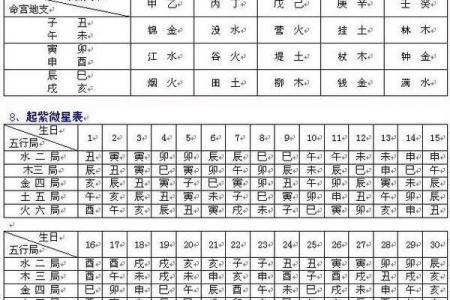 命宫地支 甲 乙 丙 丁 戊 己 庚 辛 壬 癸
子 丑
午 未 锦 金 没 水 营 火 挂 土 林 木
寅 卯
申 酉 江 水 谷 火 堤 土 杖 木 钟 金
辰 巳
戌 亥 烟 火 田 土 柳 木 钱 金 满 水
8、起紫微星表
生日
五行局 1 2 3 4 5 6 7 8 9 10 11 12 13 14 15
水 二 局 丑 寅 寅 卯 卯 辰 辰 巳 巳 午 午 未 未 申 申
木 三 局 辰 丑 寅 巳 寅 卯 午 卯 辰 未 辰 巳 申 巳 午
金 四 局 亥 辰 丑 寅 子 巳 寅 卯 丑 午 卯 辰 寅 未 辰
土 五 局 午 亥 辰 丑 寅 未 子 巳 寅 卯 申 丑 午 卯 辰
火 六 局 酉 午 亥 辰 丑 寅 戌 未 子 巳 寅 卯 亥 申 丑
生日
五行局 16 17 18 19 20 21 22 23 24 25 26 27 28 29 30
水 二 局 酉 酉 戌 戌 亥 亥 子 子 丑 丑 寅 寅 卯 卯 辰
木 三 局 酉 午 未 戌 未 申 亥 申 酉 子 酉 戌 丑 戌 亥
金 四 局 巳 卯 申 巳 午 辰 酉 午 未 巳 戌 未 申 午 亥